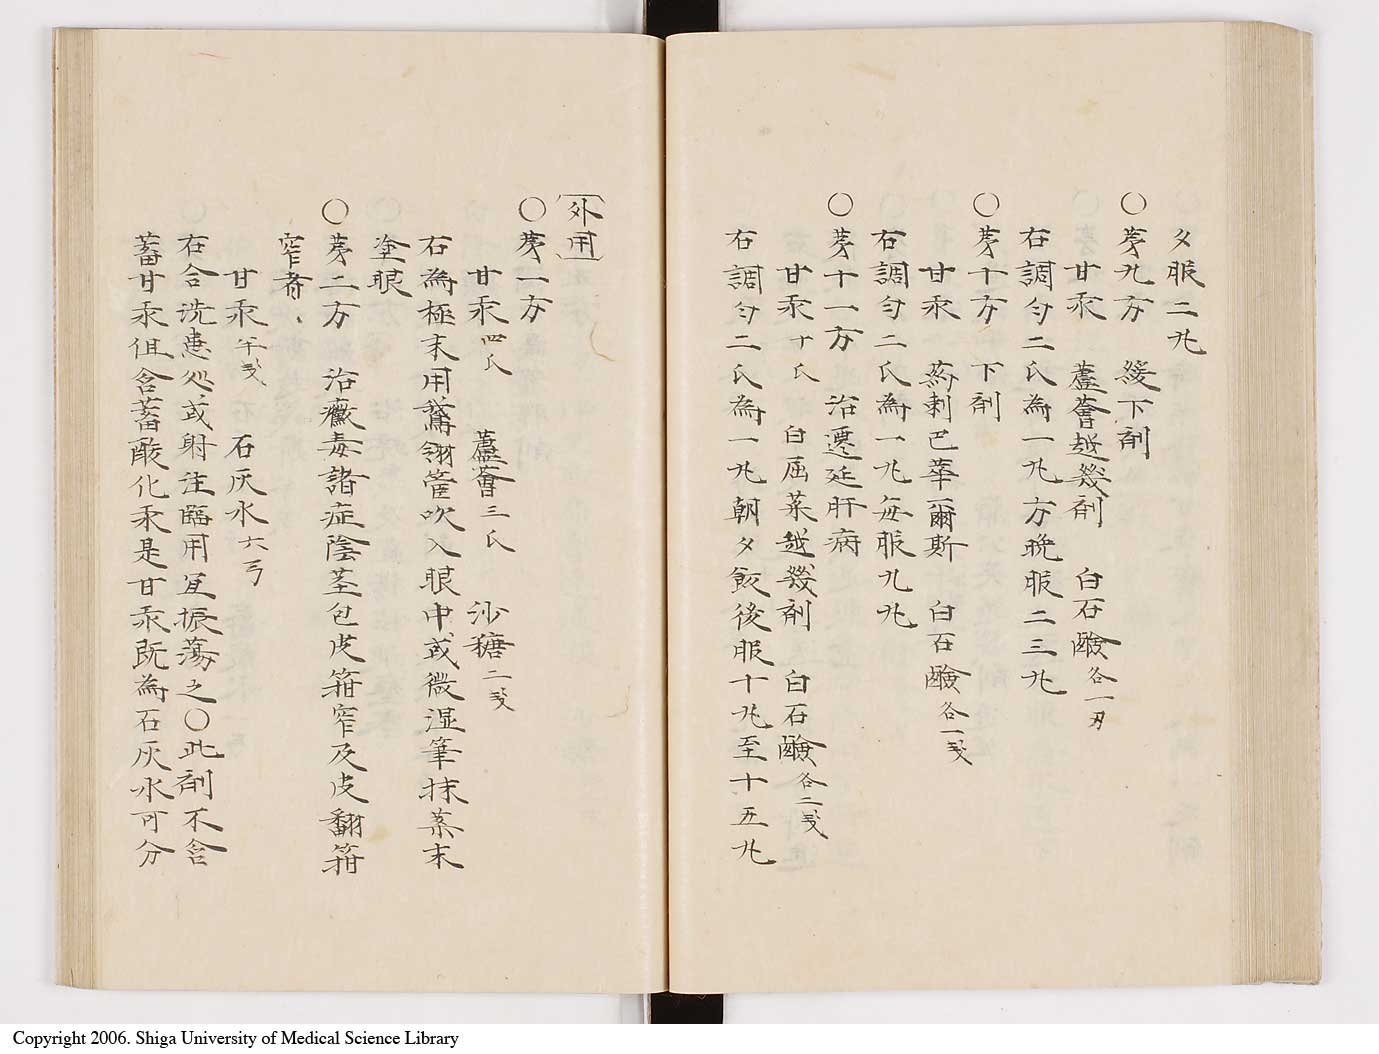 夕服二丸
〇第九方　緩下剤
甘汞　蘆薈越幾剤　白石鹸各一匁
右調匀二氏為一丸方晩服二三丸
〇第十方　下剤
甘汞　葯剌巴華爾斯　白石鹸各一戔
右調匀二氏為一丸毎服九丸
〇第十一方　治遷延肝病
甘汞十氏　白屈菜越幾剤　白石鹸各二戔
右調匀二氏為一丸朝夕飯後服十丸至十五丸
外用
〇第一方
甘汞四氏　蘆薈三氏　沙糖二戔
右為極末用鵞翎管吹入眼中或微湿筆抹薬末
塗眼
〇第二方　治黴毒諸症陰茎包皮箝窄及皮翻箝
窄者、
甘汞半戔　石灰水六弓
右合洗患処或射注臨用宜振蕩之〇此剤不含
蓄甘汞但含蓄酸化汞是甘汞既為石灰水可分
Copyright 2006. Shiga University of Medical Science Library